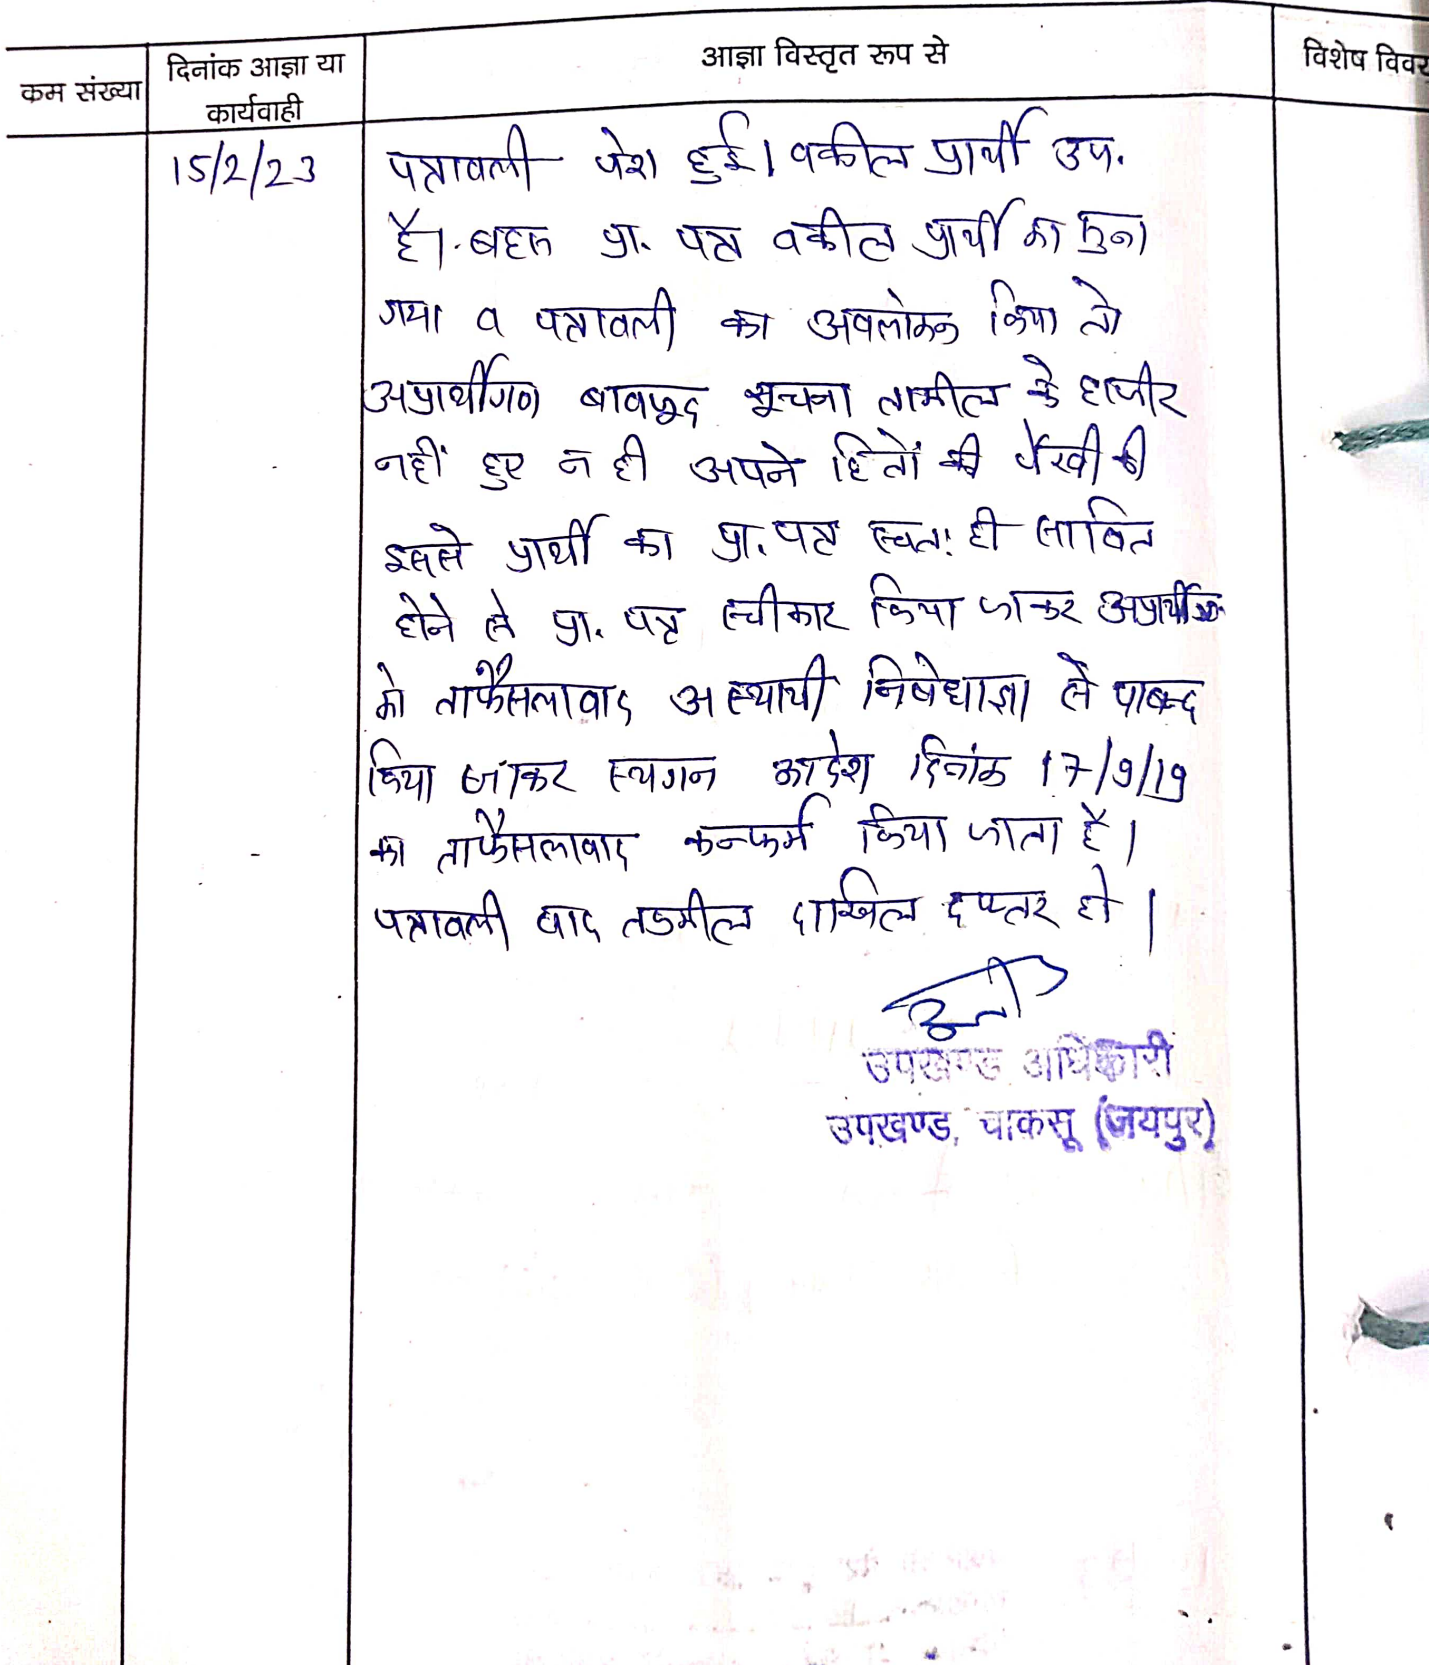 कम संख्या
दिनांक आज्ञा या
कार्यवाही
आज्ञा विस्तृत रूप से
विशेष विवर
15/2/23
पत्रावली पेश हुई। वकील प्रार्थी उप.
है। बहस प्रा. पत्र वकील प्रार्थी का सुना
गया व पत्रावली का अवलोकन किया तो
अप्रार्थीगण बावजूद सूचना तामील के हाजीर
नहीं हुए न ही अपने हितों की पैरवी की
इससे प्रार्थी का प्रा. पत्र स्वतः ही साबित
होने से प्रा. पत्र स्वीकार किया जाकर अप्रार्थीगण
को ताफैसलावाद अस्थायी निषेधाज्ञा से पाबन्द
किया जाकर स्थगन आदेश दिनांक 17/9/19
का ताफैसलावाद कन्फर्म किया जाता है।
पत्रावली बाद तकमील दाखिल दफ्तर हो।
उपखण्ड अधिकारी
उपखण्ड, चाकसू (जयपुर)